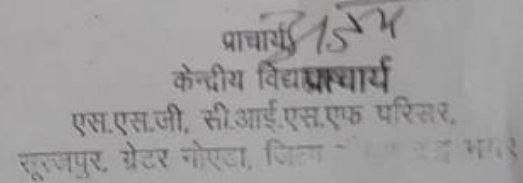 प्राचार्य
केन्द्रीय विद्या प्राचार्य
एस.एस.जी. सी.आई.एस.एफ परिसर,
सूरजपुर, ग्रेटर नोएडा, जिला